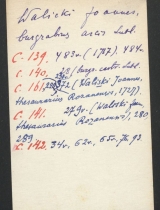 Walicki Joannes,
burgrabius arcis Lubl.
C. 139. 483 v. (1787), 484.
C. 140.
C. 161. (Waliski Joannes,
thesaurarius Rozanensis, 1727).
C. 141. 279 v. (Waloski Joan.
thesaurarius Rozanensis), 280
289
C. 142. 34 v. 62 v. 65 v. 76 93